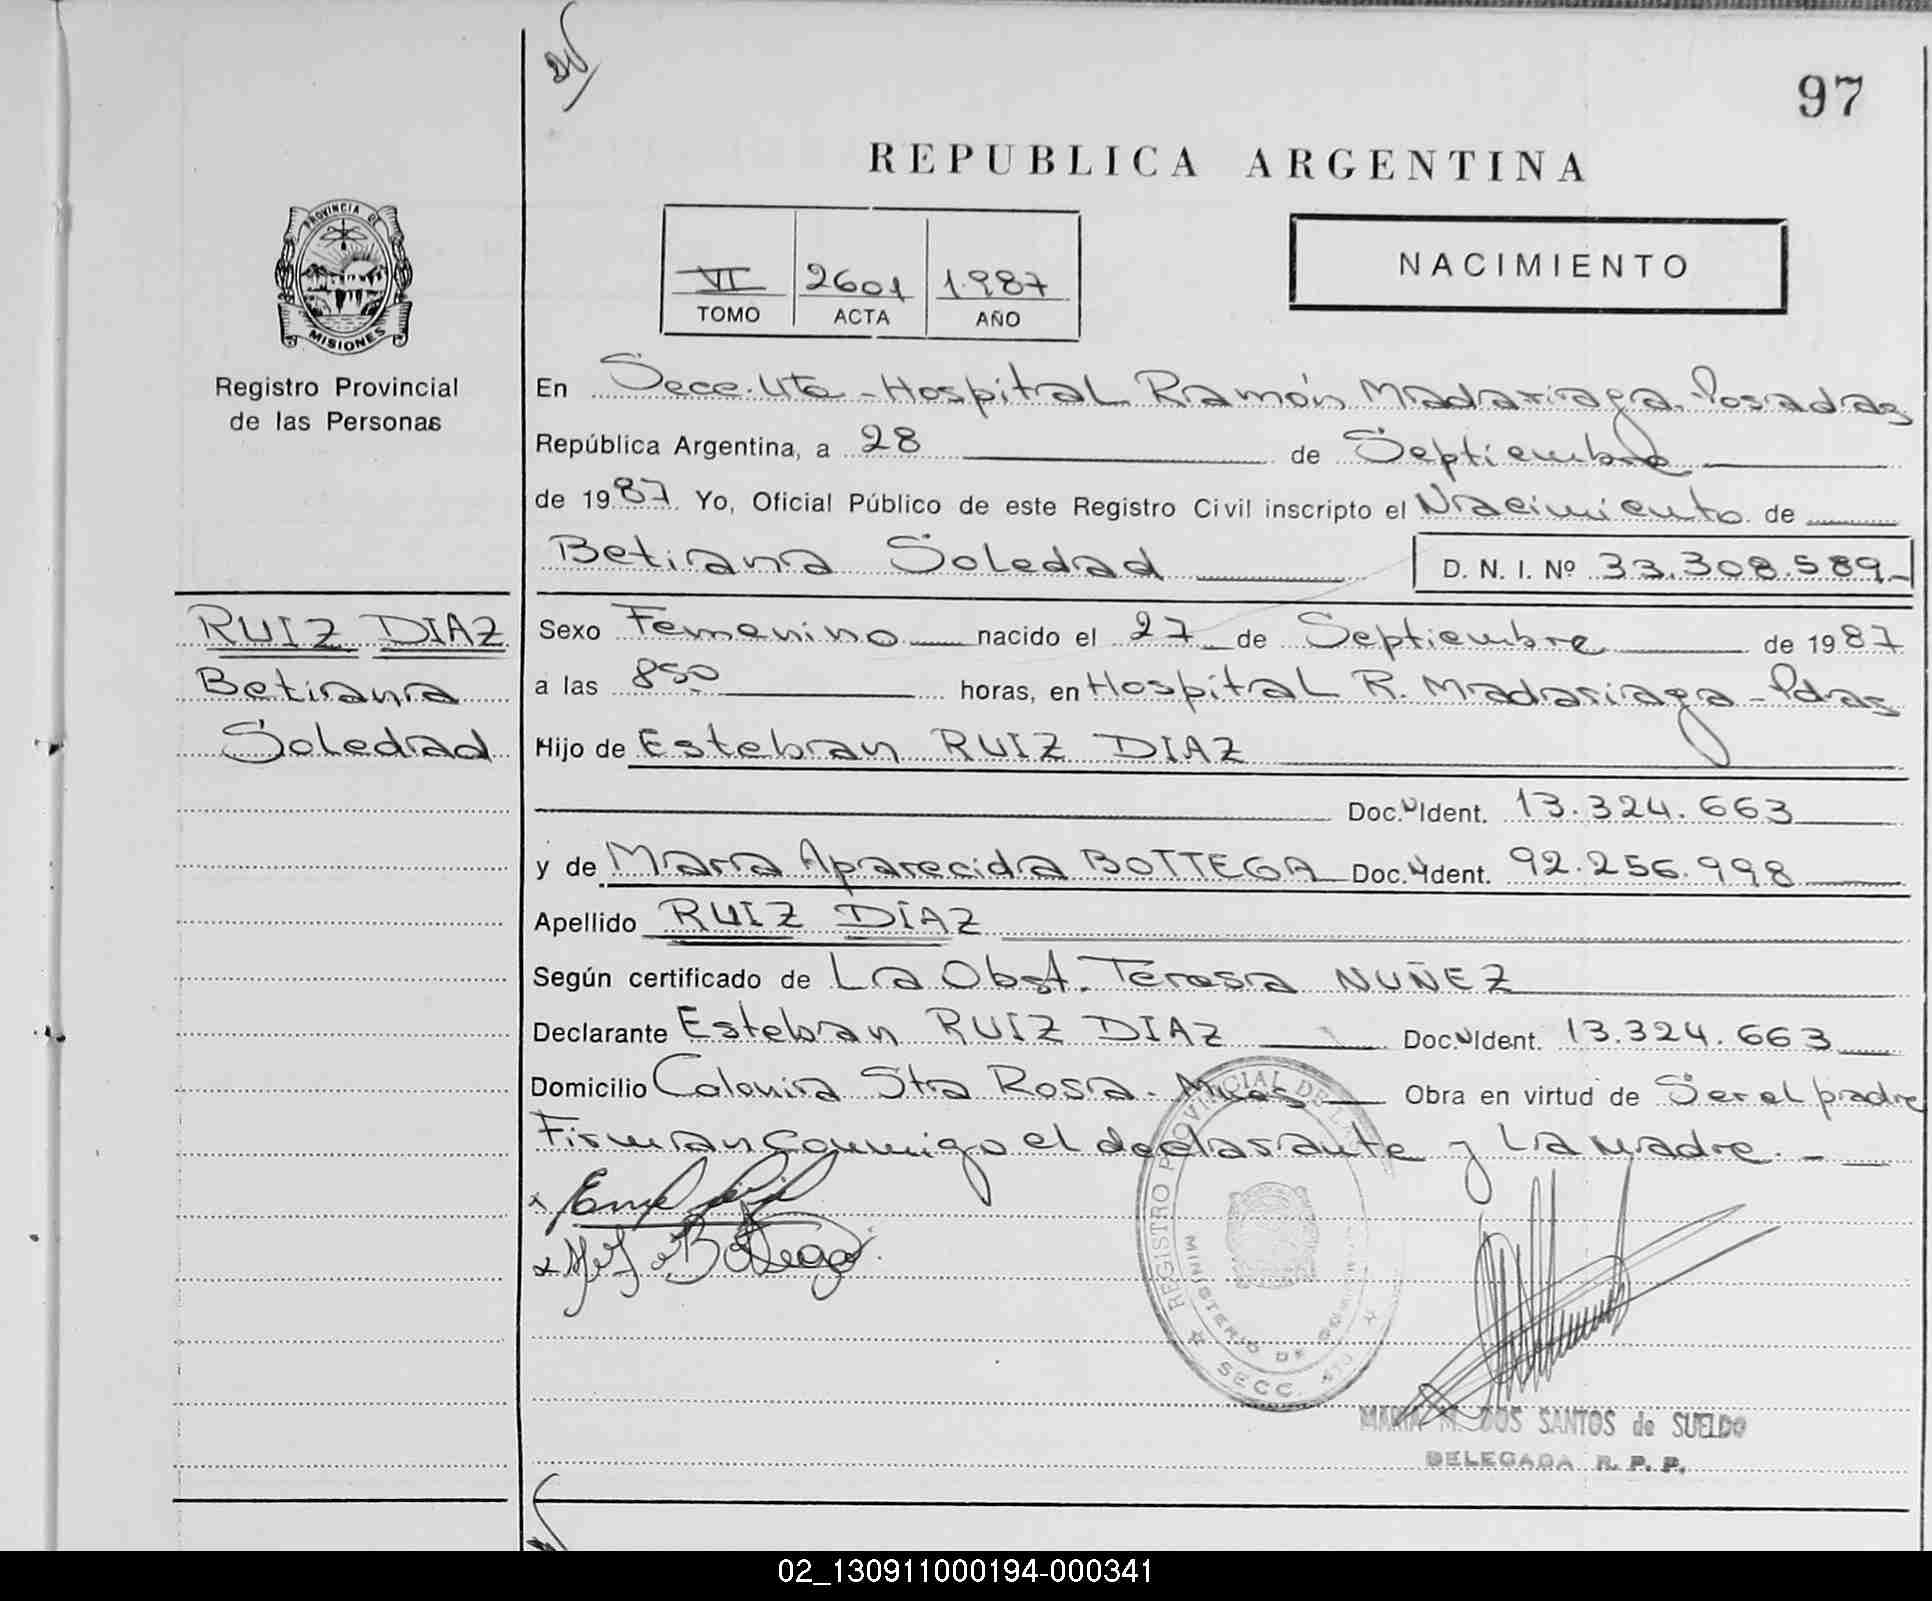 97
REPUBLICA ARGENTINA
PROVINCIA DE
MISIONES
Registro Provincial
de las Personas
VI 2601 1.987
TOMO ACTA AÑO
NACIMIENTO
En Secc. 4ta - Hospital Ramón Madariaga. Posadas
República Argentina, a 28 de Septiembre
de 1987. Yo, Oficial Público de este Registro Civil inscripto el Nacimiento de
Betiana Soledad D. N. I. Nº 33.308.589
RUIZ DIAZ
Betiana
Soledad
Sexo Femenino nacido el 27 de Septiembre de 1987
a las 850 horas, en Hospital R. Madariaga - Pdas
Hijo de Esteban RUIZ DIAZ
Doc. Ident. 13.324.663
y de Maria Aparecida BOTTEGA Doc. Ident. 92.256.998
Apellido RUIZ DÍAZ
Según certificado de La Obst. Teresa NUÑEZ
Declarante Esteban RUIZ DIAZ Doc. Ident. 13.324.663
Domicilio Colonia Sta Rosa. Mnes Obra en virtud de Ser el padre
Firman conmigo el declarante y La madre.
REGISTRO PROVINCIAL DE LAS
MINISTERIO DE GOBIERNO
SECC. 4TA
MARIA M. DOS SANTOS de SUELDO
DELEGADA R. P. P.
02_130911000194-000341